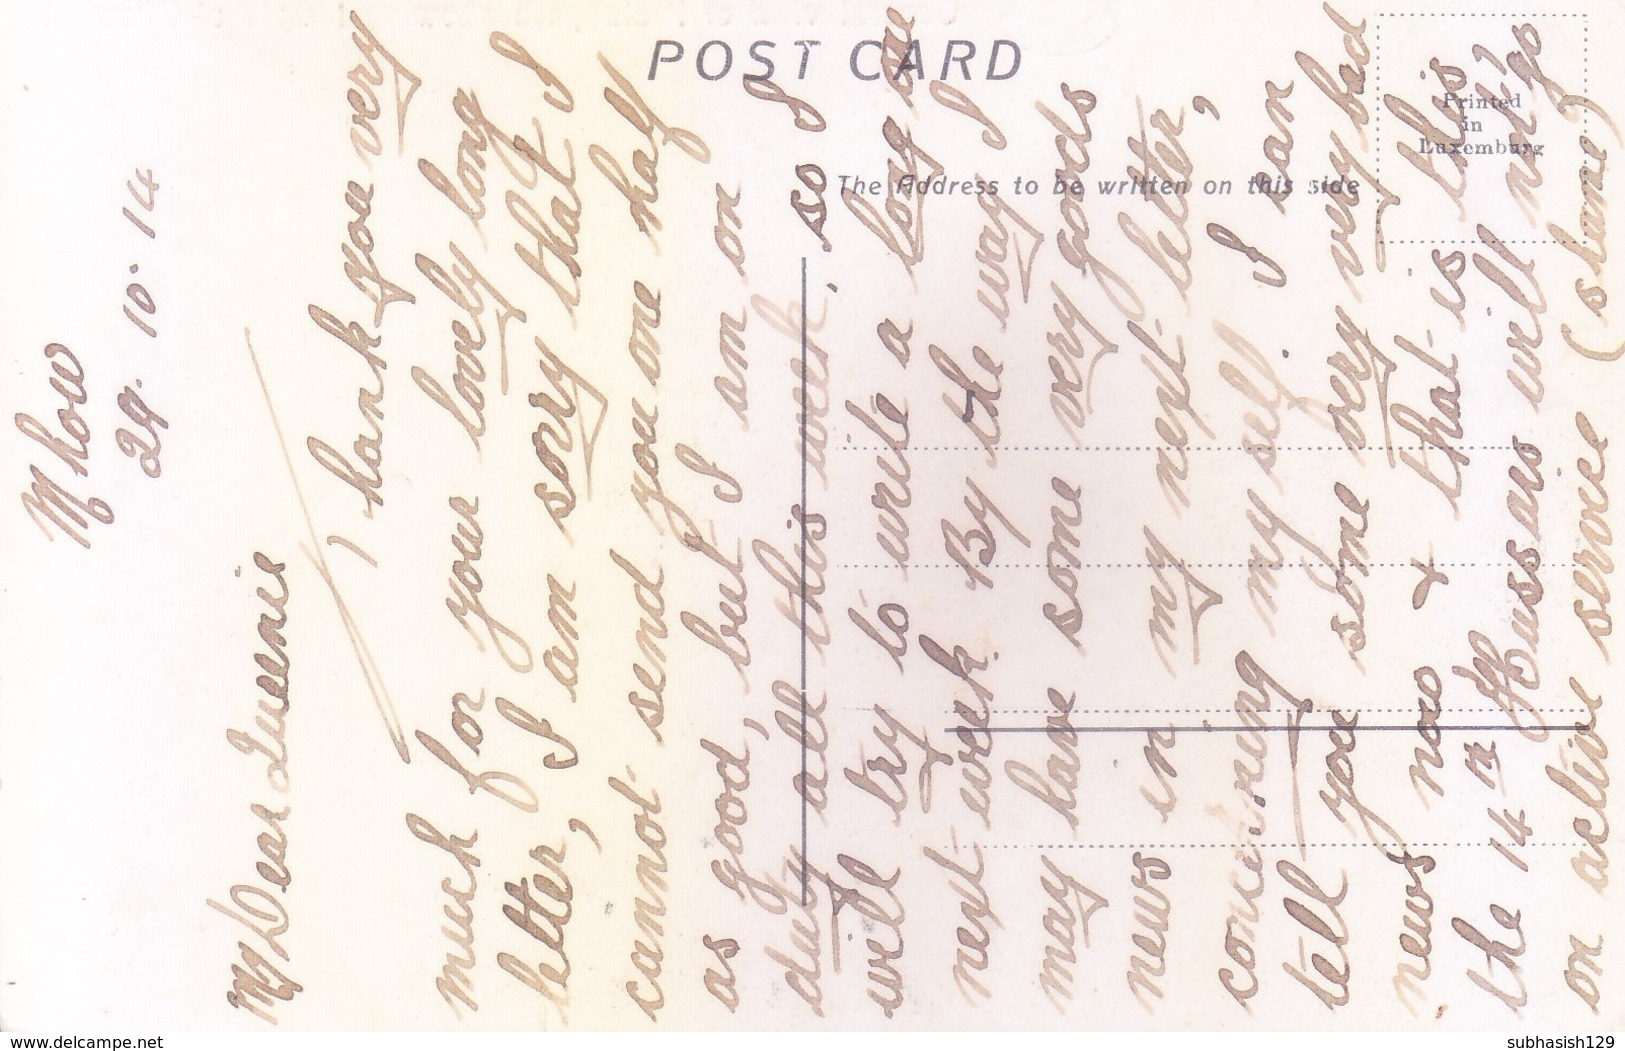 POST CARD
Printed
in
Luxemburg
The Address to be written on this side
Mhow
29. 10. 14
My Dear Queenie
Thank you very
much for your lovely long
letter, I am sorry that I
cannot send you one half
as good, but I am on
duty all this week, so I
will try to write a long one
next week. By the way I
may have some very goods
news in my next letter,
concerning my self. I can
tell you some very very bad
news now & that is this
the 14th Hussars will not go
on active service (shame)
delcampe.net
subhasish129